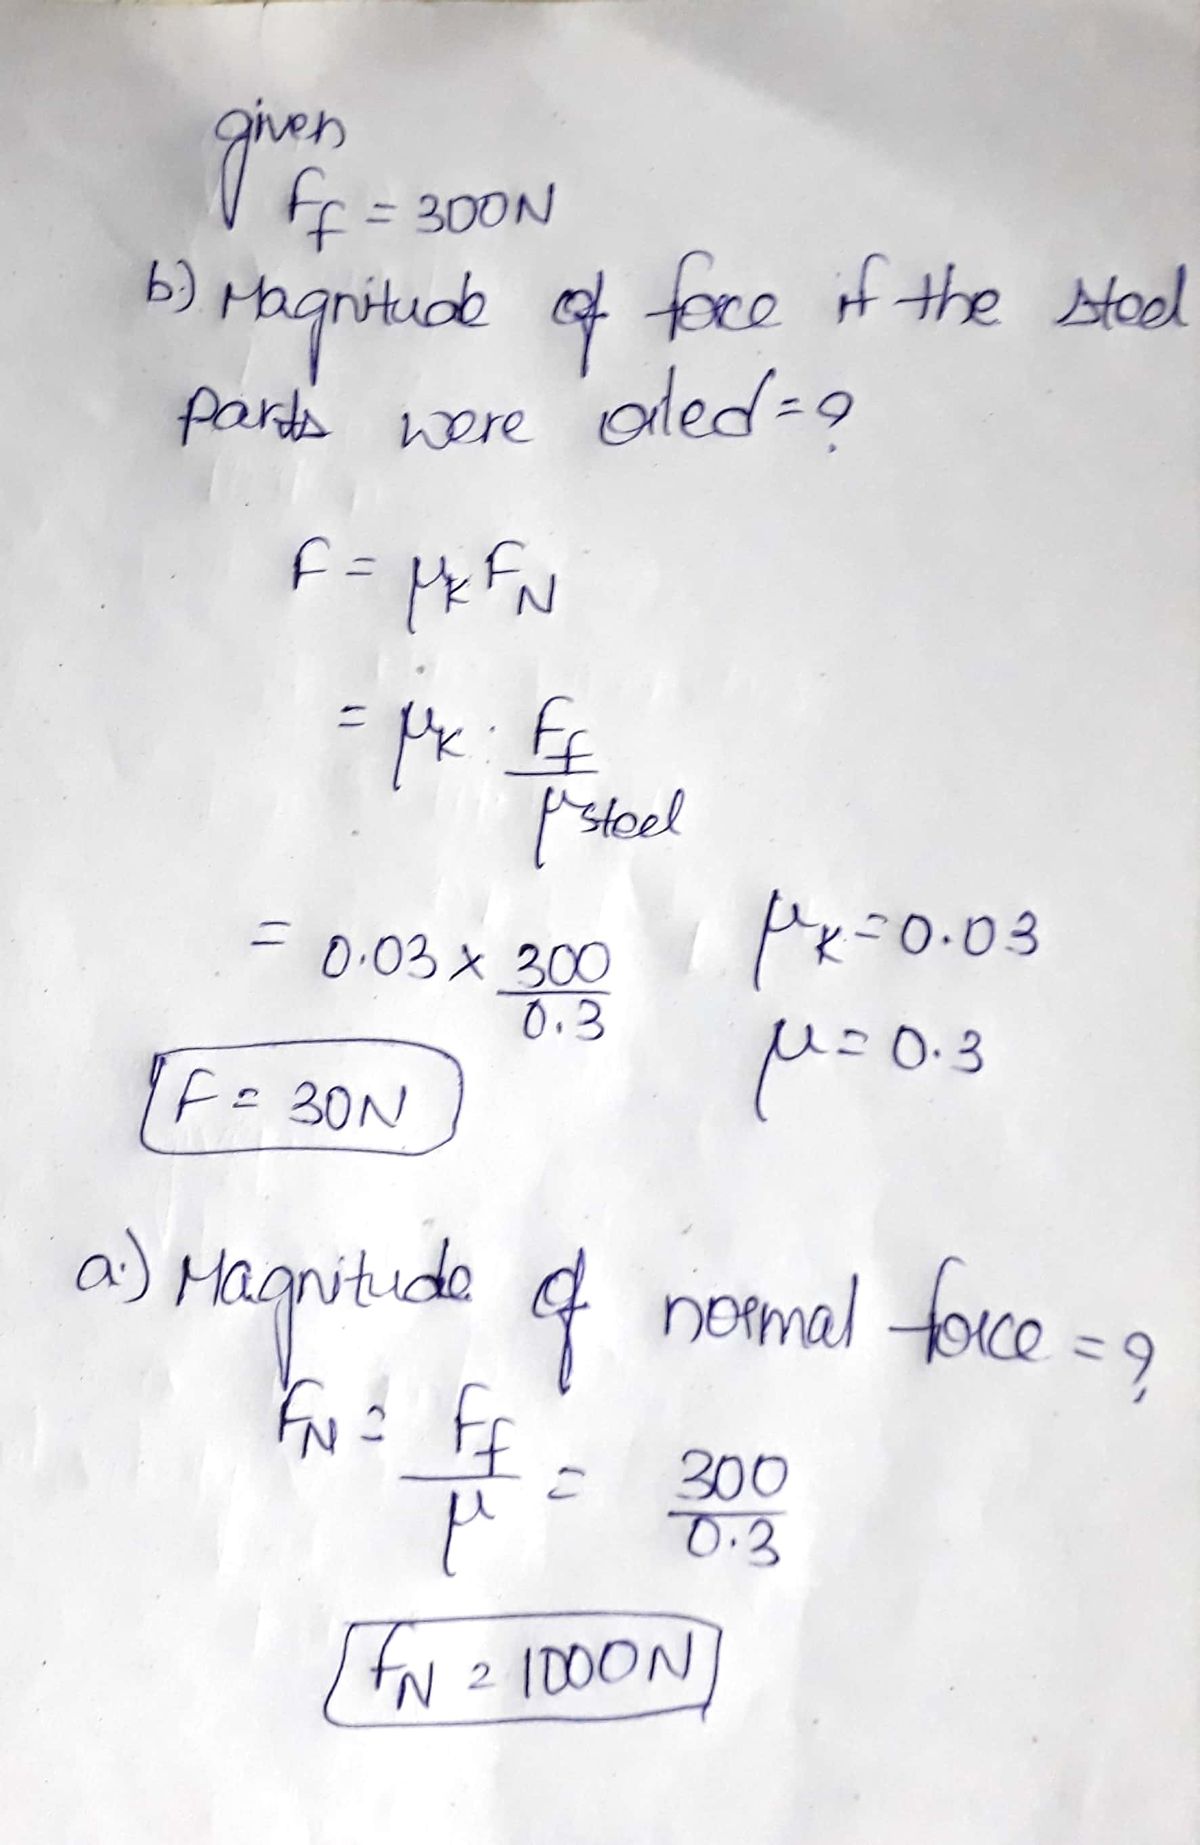 given
Ff = 300N
b.) Magnitude of force if the steel
parts were oiled = ?
F = μk FN
= μk · Ff/μsteel
= 0.03 × 300/0.3 μk = 0.03
μ = 0.3
F = 30N
a.) Magnitude of normal force = ?
FN = Ff/μ = 300/0.3
FN = 1000N